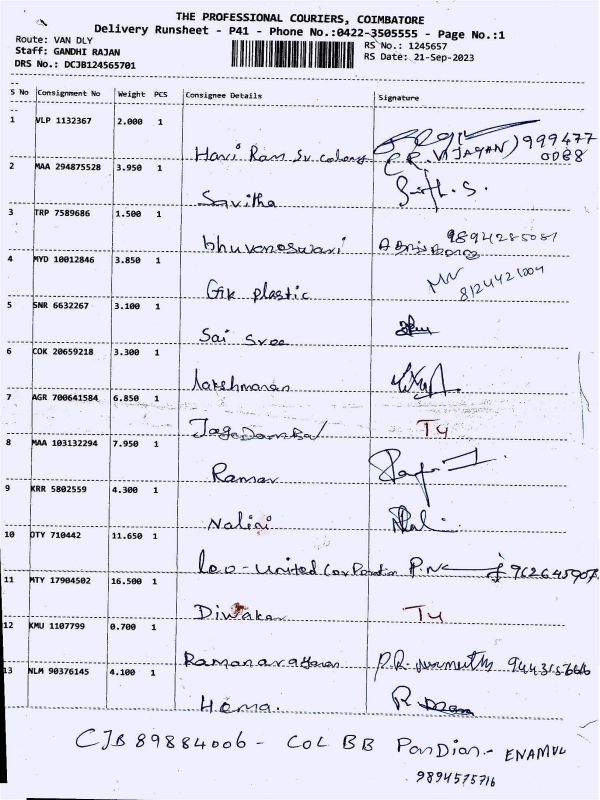 THE PROFESSIONAL COURIERS, COIMBATORE
Delivery Runsheet - P41 - Phone No.:0422-3505555 - Page No.:1
Route: VAN DLY
RS No.: 1245657
Staff: GANDHI RAJAN
RS Date: 21-Sep-2023
DRS No.: DCJB124565701
S No Consignment No Weight PCS Consignee Details Signature
1 VLP 1132367 2.000 1
Hari Ram Sv. colony (R. VIJAYAN) 999477
0088
2 MAA 294875528 3.950 1
Savitha
3 TRP 7589686 1.500 1
bhuvaneswari 9894285081
4 MYD 10012846 3.850 1
GK plastic 8124421004
5 SNR 6632267 3.100 1
Sai Sree
6 COK 20659218 3.300 1
lakshmanan
7 AGR 700641584 6.850 1
Jagadambal T4
8 MAA 103132294 7.950 1
Raman
9 KRR 5802559 4.300 1
Nalini
10 OTY 710442 11.650 1
Leo - United Corporation
11 MTY 17904502 16.500 1
Diwakar T4
12 KMU 1107799 0.700 1
Ramanarayanan P.R.
13 NLM 90376145 4.100 1
Hema. R
CJB 89884006 - COL BB Pandian - ENAMUL
9894575716